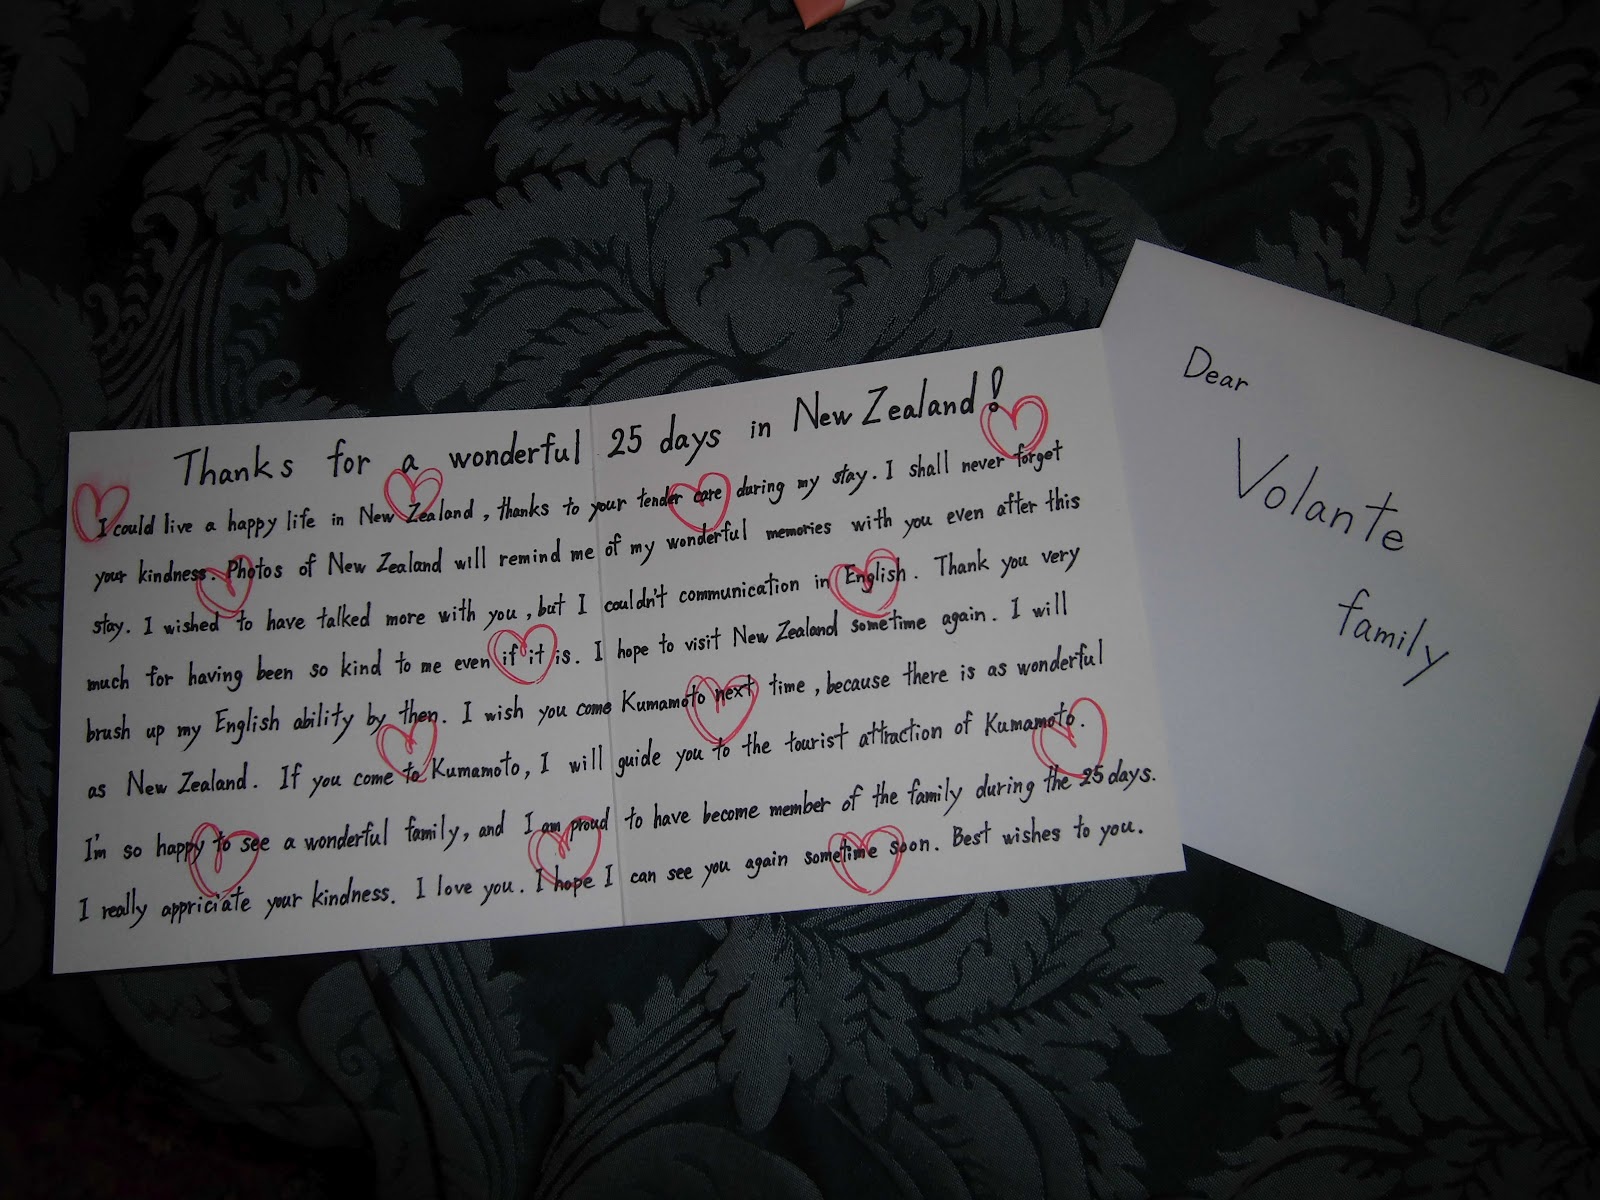 Thanks for a wonderful 25 days in New Zealand!
I could live a happy life in New Zealand, thanks to your tender care during my stay. I shall never forget
your kindness. Photos of New Zealand will remind me of my wonderful memories with you even after this
stay. I wished to have talked more with you, but I couldn't communication in English. Thank you very
much for having been so kind to me even if it is. I hope to visit New Zealand sometime again. I will
brush up my English ability by then. I wish you come Kumamoto next time, because there is as wonderful
as New Zealand. If you come to Kumamoto, I will guide you to the tourist attraction of Kumamoto.
I'm so happy to see a wonderful family, and I am proud to have become member of the family during the 25 days.
I really appriciate your kindness. I love you. I hope I can see you again sometime soon. Best wishes to you.
Dear
Volante
family